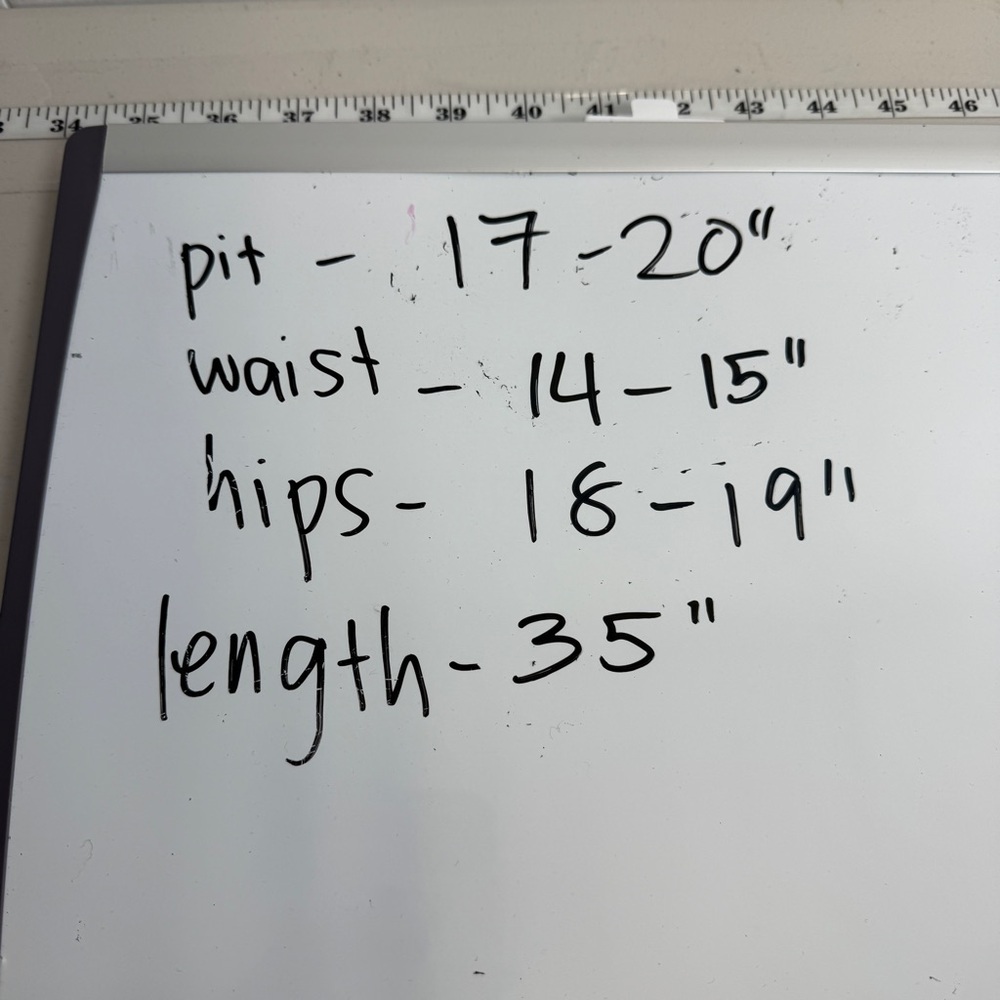 34 35 36 37 38 39 40 41 2 43 44 45 46
pit - 17-20"
waist - 14-15"
hips - 18-19"
length - 35"